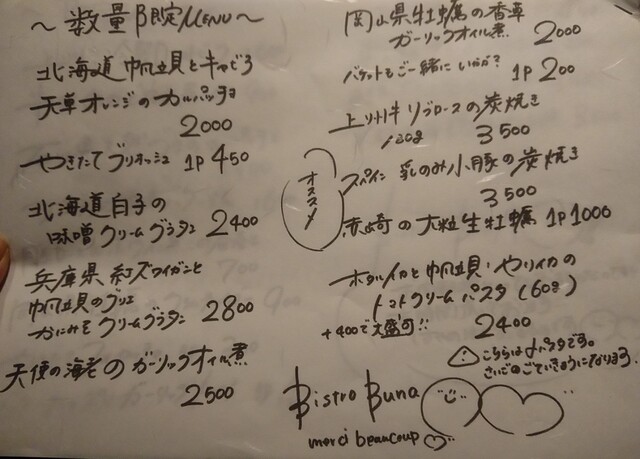 〜数量限定MENU〜
北海道帆立貝とキャビア
天草オレンジのカルパッチョ
2000
やきたてブリオッシュ 1P 450
北海道白子の
味噌クリームグラタン 2400
兵庫県紅ズワイガニと
帆立貝のグリエ
かにみそクリームグラタン 2800
天使の海老のガーリックオイル煮
2500
岡山県牡蠣の香草
ガーリックオイル煮 2000
バケットもご一緒にいかが? 1P 200
上州牛リブロースの炭焼き
120g 3500
オススメ
スペイン 乳のみ小豚の炭焼き
3500
赤崎の大粒生牡蠣 1P 1000
ホタルイカと帆立貝・ヤリイカの
トマトクリームパスタ(60g)
+400で大盛可!! 2400
こちらは〆パスタです。
さいごのごていきょうになります。
Bistro Buna
merci beaucoup